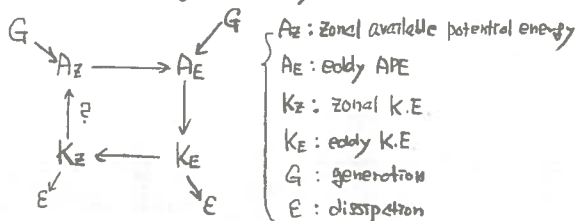 G
G
Az
AE
?
Kz
KE
ε
ε
Az : zonal available potential energy
AE : eddy APE
Kz : zonal K.E
KE : eddy K.E
G : generation
ε : dissipation